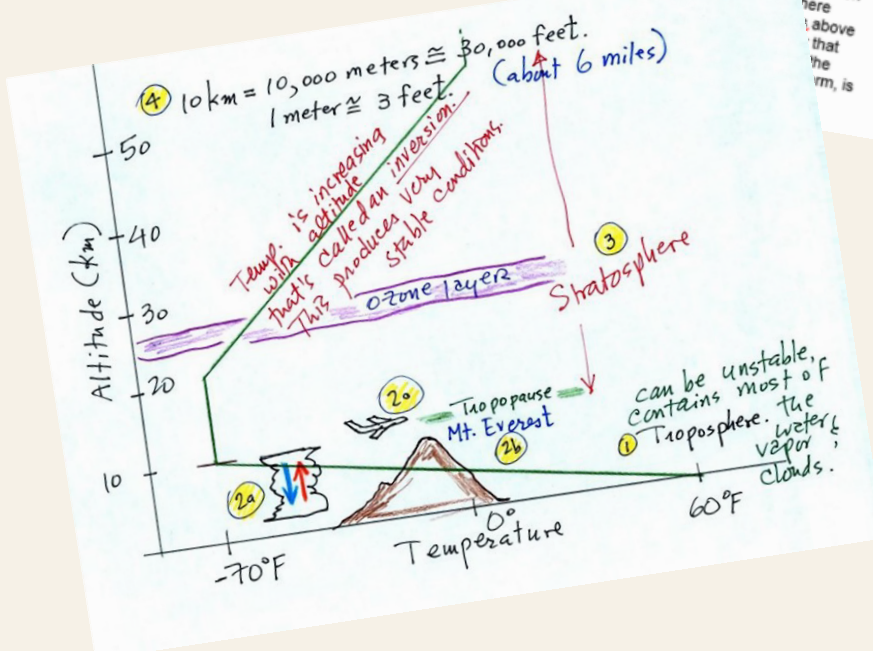 here
above
that
the
rm, is
④ 10 km = 10,000 meters ≅ 30,000 feet.
(about 6 miles)
1 meter ≅ 3 feet.
Temp. is increasing
with altitude
that's called an inversion.
This produces very
stable conditions.
50
40
30
20
10
Altitude (km)
ozone layer
③
Stratosphere
2c
Tropopause
Mt. Everest
2b
2a
can be unstable,
contains most of
① Troposphere. the
water
vapor &
clouds.
-70°F
0°
60°F
Temperature